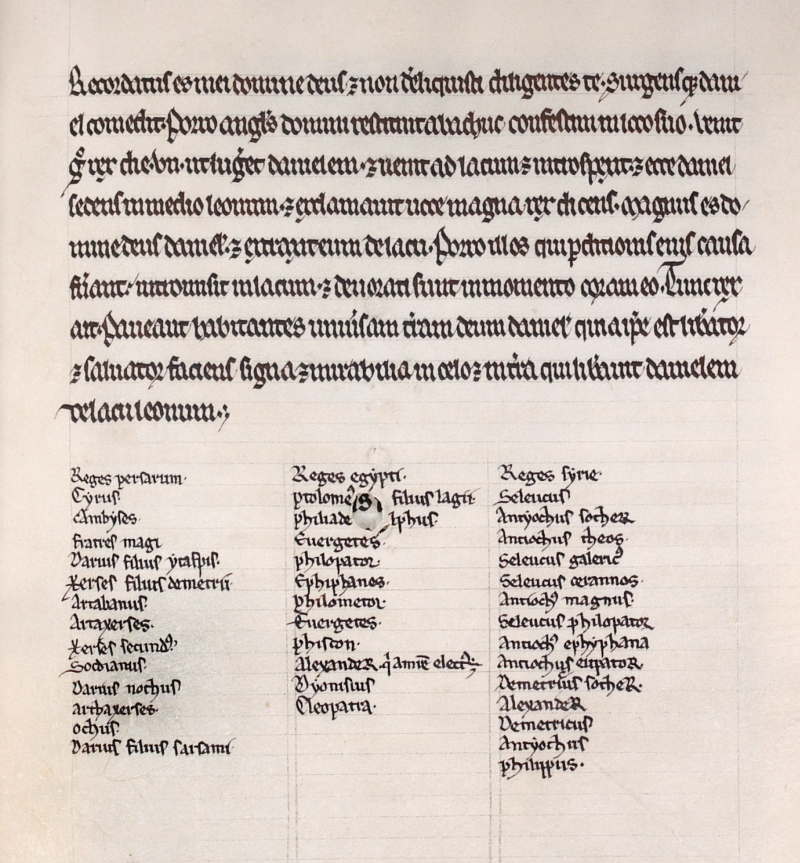 Recordatus es mei domine deus ⁊ non d̅eliquisti diligentes te. Surgensq; dani
el comedit. Porro angl̅s domini restituit abachuc confestim in loco suo. Venit
gͦ rex die .vii. ut lug̅et danielem. ⁊ uenit ad lacum ⁊ introspexit. ⁊ ecce daniel
sedens in medio leonum. ⁊ exclamauit uoce magna rex dicens. Magnus es do
mine deus daniel̅. ⁊ extraxit eum de lacu. Porro illos qui p̱ditionis eius causa
fu̅ant. intromisit in lacum. ⁊ deuorati sunt in momento coram eo. Tunc rex
ait. Paueant habitantes in uniu̅sam t̅ram deum daniel̅ quia ip̅e est lib̅ator
⁊ saluator faciens signa ⁊ mirabilia in celo ⁊ in t̅ra qui lib̅auit danielem
de lacu leonum.
Reges persarum.
Cyrus.
Cambyses.
fratres magi
Darius filius ytaspis.
Xerses filius demetrii
Artabanus.
Artaxerses.
Xerses secundꝰ
Socdianus.
Darius nothus
arthaxerses.
ochus.
Darius filius sarsami
Reges egypti.
ptolomeꝰ filius lagii
philiade lphus.
Euergetes.
philopator
Ephiphanes.
philometor
Euergetes
phiscon.
Alexander q̇ a mr̅e elect̅
Dyonisius
Cleopatra.
Reges syrie.
Seleucus
Antyochus socher
Antiochus theos.
Seleucus galericꝰ
Seleucus cerannos.
Antiochꝰ magnus.
Seleucus philopator
Antiochꝰ ephyphana
Antiochus eupator.
Demetrius socher.
Alexander
Demetricus
Antyochus
philippus.